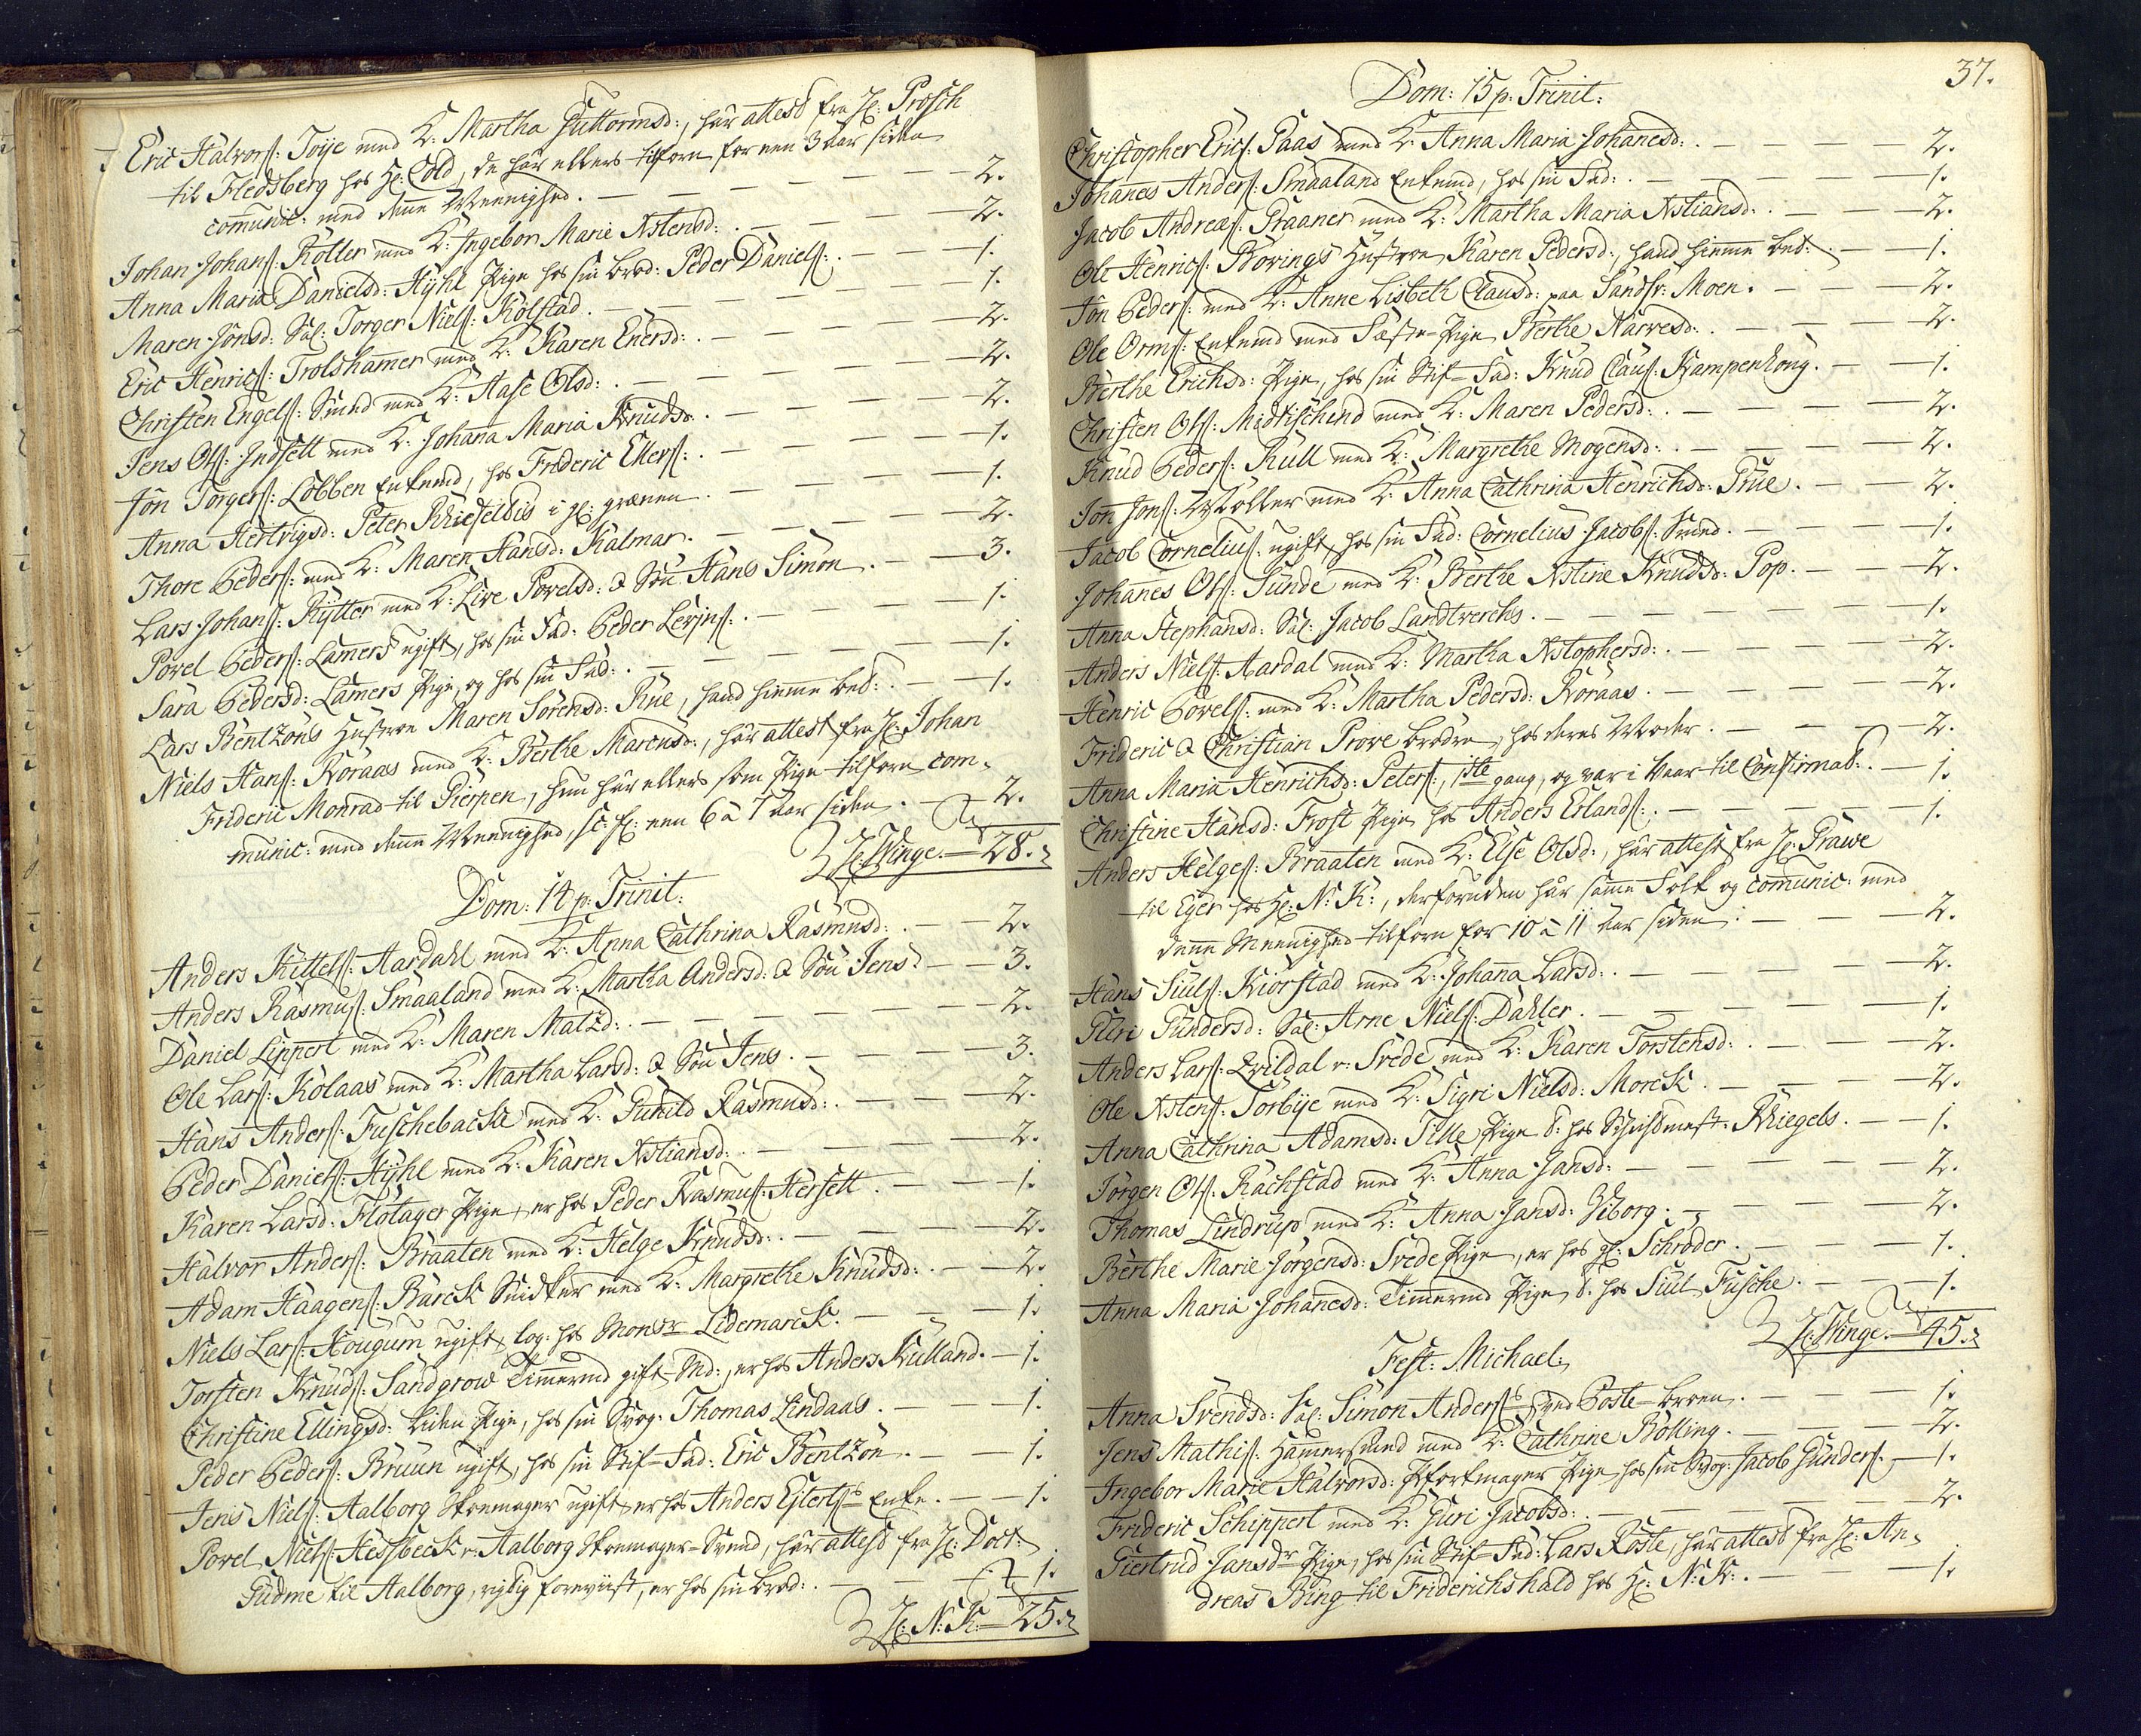 Eric Halvors: Toÿe med K: Martha Guttormsd:, har attest fra H: Prosch
til Fledsberg hos H: Cold, de har ellers tilforn for een 3 aar siden
com̄unic: med denne Meenighed. — 2.
Johan Johans: Röller med K: Ingebor Marie Xstensd: — 2.
Anna Maria Danielsd: Hÿhl Pige hos sin brod: Peder Daniels: — 1.
Maren Jönsd: Sal: Torger Niels: Kolstad. — 1.
Eric Henrics: Trolshamer med K: Karen Enersd: — 2.
Christen Engels: Smed med K: Aase Olsd: — 2.
Jens Ols: Indsett med K: Johanna Maria Knudsd: — 2.
Jön Torgers: Löbben Enkemd, hos Frideric Ellers: — 1.
Anna Hertvigsd: Peter Rhiefeldts i H: — 1.
Thore Peders: med K: Maren Hansd: Kalmar. — 2.
Lars Johans: Rÿtter med K: Live Povelsd: & Sön Hans Simon. — 3.
Povel Peders: Lamers ugift, hos sin Fad: Peder Levins: — 1.
Sara Pedersd: Lamers Pige, og hos sin Fad: — 1.
Lars Bentzöns Hustroe Maren Sörensd: Rue, hand hiemme bed: — 1.
Niels Hans: Roraas med K: Berthe Marcusd:, har attest fra H: Johan
Frideric Monrad til Gierpen, hun har ellers som Pige tilforn com-
munic: med denne Meenighed, sc: H: een 6 à 7 aar siden. — 2.
H: Winge. — 28.
Dom: 14 p: Trinit:
Anders Kittels: Aardahl med K: Anna Cathrina Rasmusd: — 2.
Anders Rasmus: Smaaland med K: Martha Andersd: & Sön Jens. — 3.
Daniel Lippert med K: Maren Matzd: — 2.
Ole Lars: Kolaas med K: Martha Larsd: & Sön Jens. — 3.
Hans Anders: Fuschebache med K: Gunild Rasmusd: — 2.
Peder Daniels: Hÿhl med K: Karen Xstiansd: — 2.
Karen Larsd: Flötager Pige, er hos Peder Rasmus: Hersett. — 1.
Halvor Anders: Braaten med K: Helge Knudsd: — 2.
Adam Haagens: Barck Snidker med K: Margrethe Knudsd: — 2.
Niels Lars: Hougum ugift, log: hos Monsr Lidemarck. — 1.
Torsten Knuds: Sandgrow Tim̄ermd gift Md:, er hos Anders Kulland. — 1.
Christine Ellingsd: liden Pige, hos sin Svog: Thomas Lindaas. — 1.
Peder Peders: Bruun ugift, hos sin Stif-Fad: Eric Bentzön. — 1.
Jens Niels: Aalborg Skoemager ugift er hos Anders Ejlerts Enke. — 1.
Povel Niels: Hessbeck v: Aalborg Skoemager-Svend, har attest fra H: Doct:
Gudme til Aalborg, rigtig foreviist, er hos sin brod: — 1.
H: N: K: — 25.
37.
Dom: 15 p: Trinit:
Christopher Erics: Paas med K: Anna Maria Johanesd: — 2.
Johanes Anders: Smaaland Enkemd, hos sin Fad: — 1.
Jacob Andreæs: Praaner med K: Martha Maria Xstiansd: — 2.
Ole Henrics: Börings Hustroe Karen Pedersd:, hand hiemme bed: — 1.
Jön Peders: med K: Anne Lisbeth Clausd: paa Sandsv: Moen. — 2.
Ole Orms: Enkemd med Fæste-Pige Berthe Narvesd: — 2.
Berthe Erichsd: Pige, hos sin Stif-Fad: Knud Claus: Kampenhoug. — 1.
Christen Ols: Medtischend med K: Maren Pedersd: — 2.
Knud Peders: Rull med K: Margrethe Mogensd: — 2.
Jon Jons: Möller med K: Anna Cathrina Henrichsd: Prue. — 2.
Jacob Cornelius: ugift, hos sin Fad: Cornelius Jacobs: Smed. — 1.
Johanes Ols: Sunde med K: Berthe Xstine Knudsd: Pop. — 2.
Anna Stephansd: Sal: Jacob Landtverchs. — 1.
Anders Niels: Aardal med K: Martha Xstophersd: — 2.
Henric Povels: med K: Martha Pedersd: Roraas. — 2.
Frideric & Christian Prove brödre, hos deres Moder. — 2.
Anna Maria Henrichsd: Peters:, 1ste gang, og var i Vaar til Confirmat: — 1.
Christine Hansd: Frost Pige hos Anders Erlands: — 1.
Anders Helges: Braaten med K: Else Olsd:, har attest fra H: Prawe
til Eger hos H: N: K:, derforuden har samme Folk og com̄unic: med
denne Meenighed tilforn for 10 à 11 aar siden: — 2.
Hans Siuls: Kiörstad med K: Johanna Larsd: — 2.
Guri Gundersd: Sal: Arne Niels: Dahler. — 1.
Anders Lars: Qvildal v: Svede med K: Karen Torstensd: — 2.
Ole Xstens: Torbÿe med K: Sigri Nielsd: Morck. — 2.
Anna Cathrina Adamsd: Tille Pige t: hos Rhiegels. — 1.
Jörgen Ols: Rachstad med K: Anna Jansd: — 2.
Thomas Lindrup med K: Anna Jansd: Giborg. — 2.
Berthe Marie Jörgensd: Svede Pige, er hos H: Schröder. — 1.
Anna Maria Johanesd: Tim̄ermd Pige, t: hos Siul Fusche. — 1.
H: Winge. — 45.
Fest: Michael:
Anna Svendsd: Sal: Simon Anders ved Poste-broen. — 1.
Jens Mathis: Hammersmed med K: Cathrine Bölling. — 2.
Ingebor Marie Halvorsd: Pige hos sin Svog: Jacob Gunders: — 1.
Frideric Schippert med K: Guri Jacobsd: — 2.
Giertrud Jansdr Pige, hos sin Stif-Fad: Lars Röste, har attest fra H: An-
dreas Bing til Friderichshald hos H: N: K: — 1.